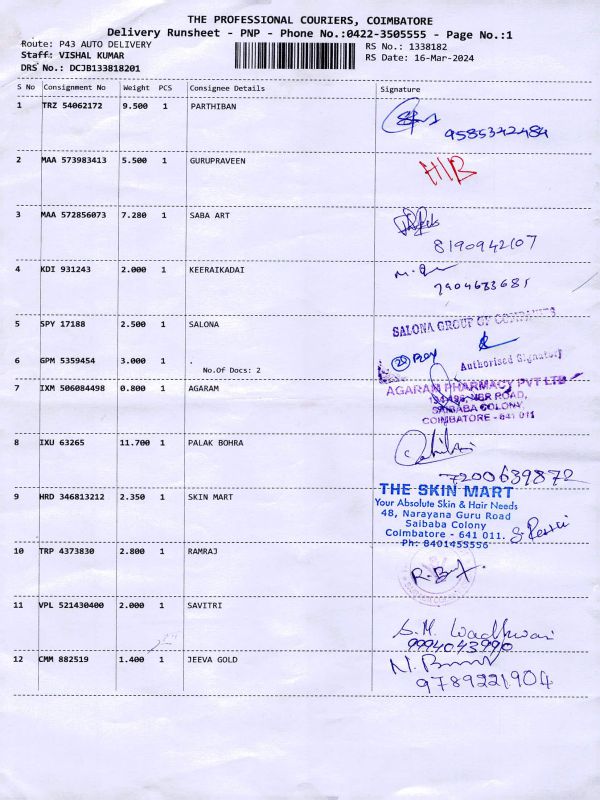 THE PROFESSIONAL COURIERS, COIMBATORE
Delivery Runsheet - PNP - Phone No.:0422-3505555 - Page No.:1
Route: P43 AUTO DELIVERY
RS No.: 1338182
Staff: VISHAL KUMAR
RS Date: 16-Mar-2024
DRS No.: DCJB133818201
S No Consignment No Weight PCS Consignee Details Signature
1 TRZ 54062172 9.500 1 PARTHIBAN
9585342484
2 MAA 573983413 5.500 1 GURUPRAVEEN
H/B
3 MAA 572856073 7.280 1 SABA ART
8190942107
4 KDI 931243 2.000 1 KEERAIKADAI
7904683681
5 SPY 17188 2.500 1 SALONA
SALONA GROUP OF COMPANIES
6 GPM 5359454 3.000 1 .
No.Of Docs: 2
Authorised Signatory
7 IXM 506084498 0.800 1 AGARAM
AGARAM PHARMACY PVT LTD
NSR ROAD,
SAIBABA COLONY,
COIMBATORE - 641 011
8 IXU 63265 11.700 1 PALAK BOHRA
7200639872
9 HRD 346813212 2.350 1 SKIN MART
THE SKIN MART
Your Absolute Skin & Hair Needs
48, Narayana Guru Road
Saibaba Colony
Coimbatore - 641 011.
Ph: 8401455556
10 TRP 4373830 2.800 1 RAMRAJ
11 VPL 521430400 2.000 1 SAVITRI
S.M. Wadhwani
9994043990
12 CMM 882519 1.400 1 JEEVA GOLD
9789221904